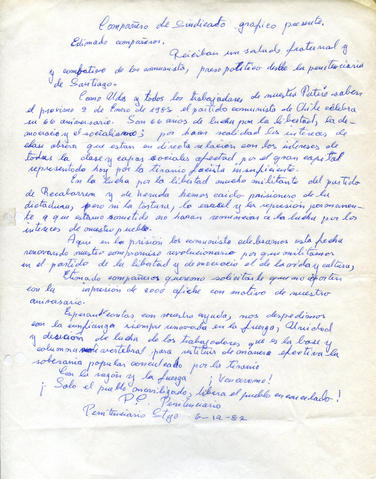 Compañero de Sindicato grafico presente.
Estimado compañeros.
Reciban un saludo fraternal y
y combativo de los comunista, preso politico desde la penitenciaria
de Santiago.
Como Uds y todos los trabajadores de nuestra Patria saben
el proximo 2 de Enero de 1983 el partido comunista de Chile celebra
su 66 aniversario. Son 66 años de lucha por la libertad, la de-
mocracia y el socialismo; por hacer realidad los intereses de
clase obrera que estan en directa relacion con los intereses de
todas la clase y capas sociales afectad por el gran capital
representado hoy por la tirania facista
En la lucha por la libertad mucho militante del partido
de Recabarren y de Neruda hemos caido prisionero de la
dictadura, pero ni la tortura, la carcel y la represion permanen-
te a que estamo sometido no haran renunciar a la lucha por los
interes de nuestro pueblo.
Aqui en la prision los comunista celebramos esta fecha
renovando nuestro compromiso revolucionario por que militamos
en el partido de la libertad y democracia el de la vida y cultura,
Estimado compañeros queremo solicitarle que no aporten
con la impresion de 2000 afiche con motivo de nuestro
aniversario.
Esperando contar con vuestra ayuda, nos despedimos
con la confianza siempre renovada en la fuerza, Unidad
y decision de lucha de los trabajadores que es la base y
columna vertebral para restituir de manera efectiva la
soberania popular conculcado por la tirania
Con la razon y la fuerza ¡Venceremo!
¡Solo el pueblo movilizado, libera el pueblo encarcelado!
P.C. Penitenciario
Penitenciario Stgo 6-12-82